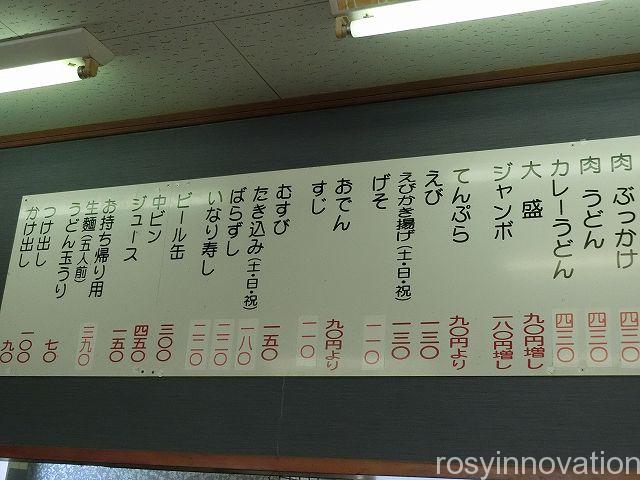 肉 ぶっかけ 四三〇
肉 うどん 四三〇
カレーうどん 四三〇
大 盛 九〇円増し
ジャンボ 一八〇円増し
てんぷら 九〇円より
えび 一三〇
えびかき揚げ(土・日・祝) 一三〇
げそ 一一〇
おでん 九〇円より
すじ 一一〇
むすび 一五〇
たき込み(土・日・祝) 一八〇
ばらずし 二二〇
いなり寿し 二二〇
ビール缶 三〇〇
中ビン 四五〇
ジュース 一五〇
お持ち帰り用
生麺(五人前) 三九〇
うどん玉うり 七〇
つけ出し 一〇〇
かけ出し 九〇
rosyinnovation